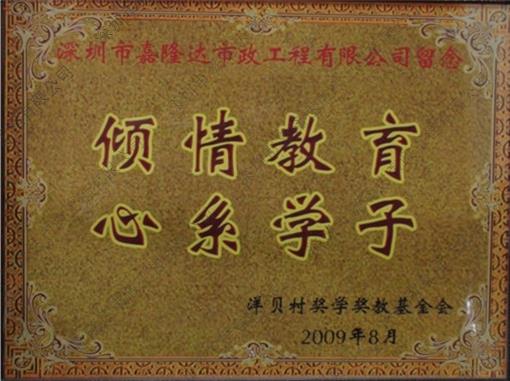 深圳市嘉隆达市政工程有限公司留念
倾情教育
心系学子
洋贝村奖学奖教基金会
2009年8月